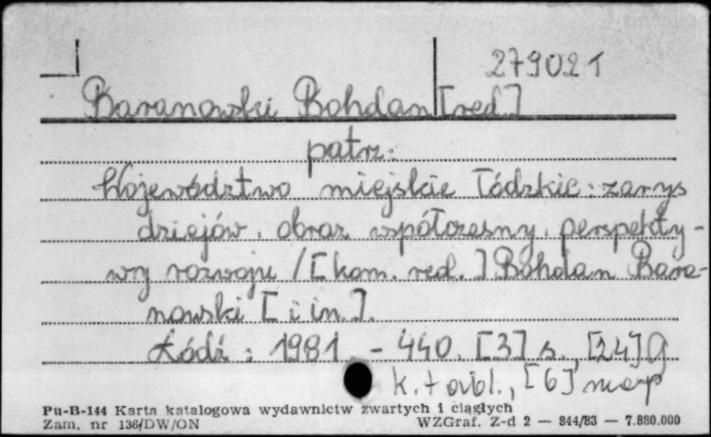 279021
Baranowski Bohdan [red.]
patrz:
Województwo miejskie łódzkie: zarys
dziejów, obraz współczesny, perspekty-
wy rozwoju / [kom. red.] Bohdan Bara-
nowski [i in.].
Łódź : 1981. - 440, [3] s., [24]
k. tabl., [6] map
Pu-B-144 Karta katalogowa wydawnictw zwartych i ciągłych
Zam. nr 136/DW/ON WZGraf. Z-d 2 — 844/83 — 7.880.000